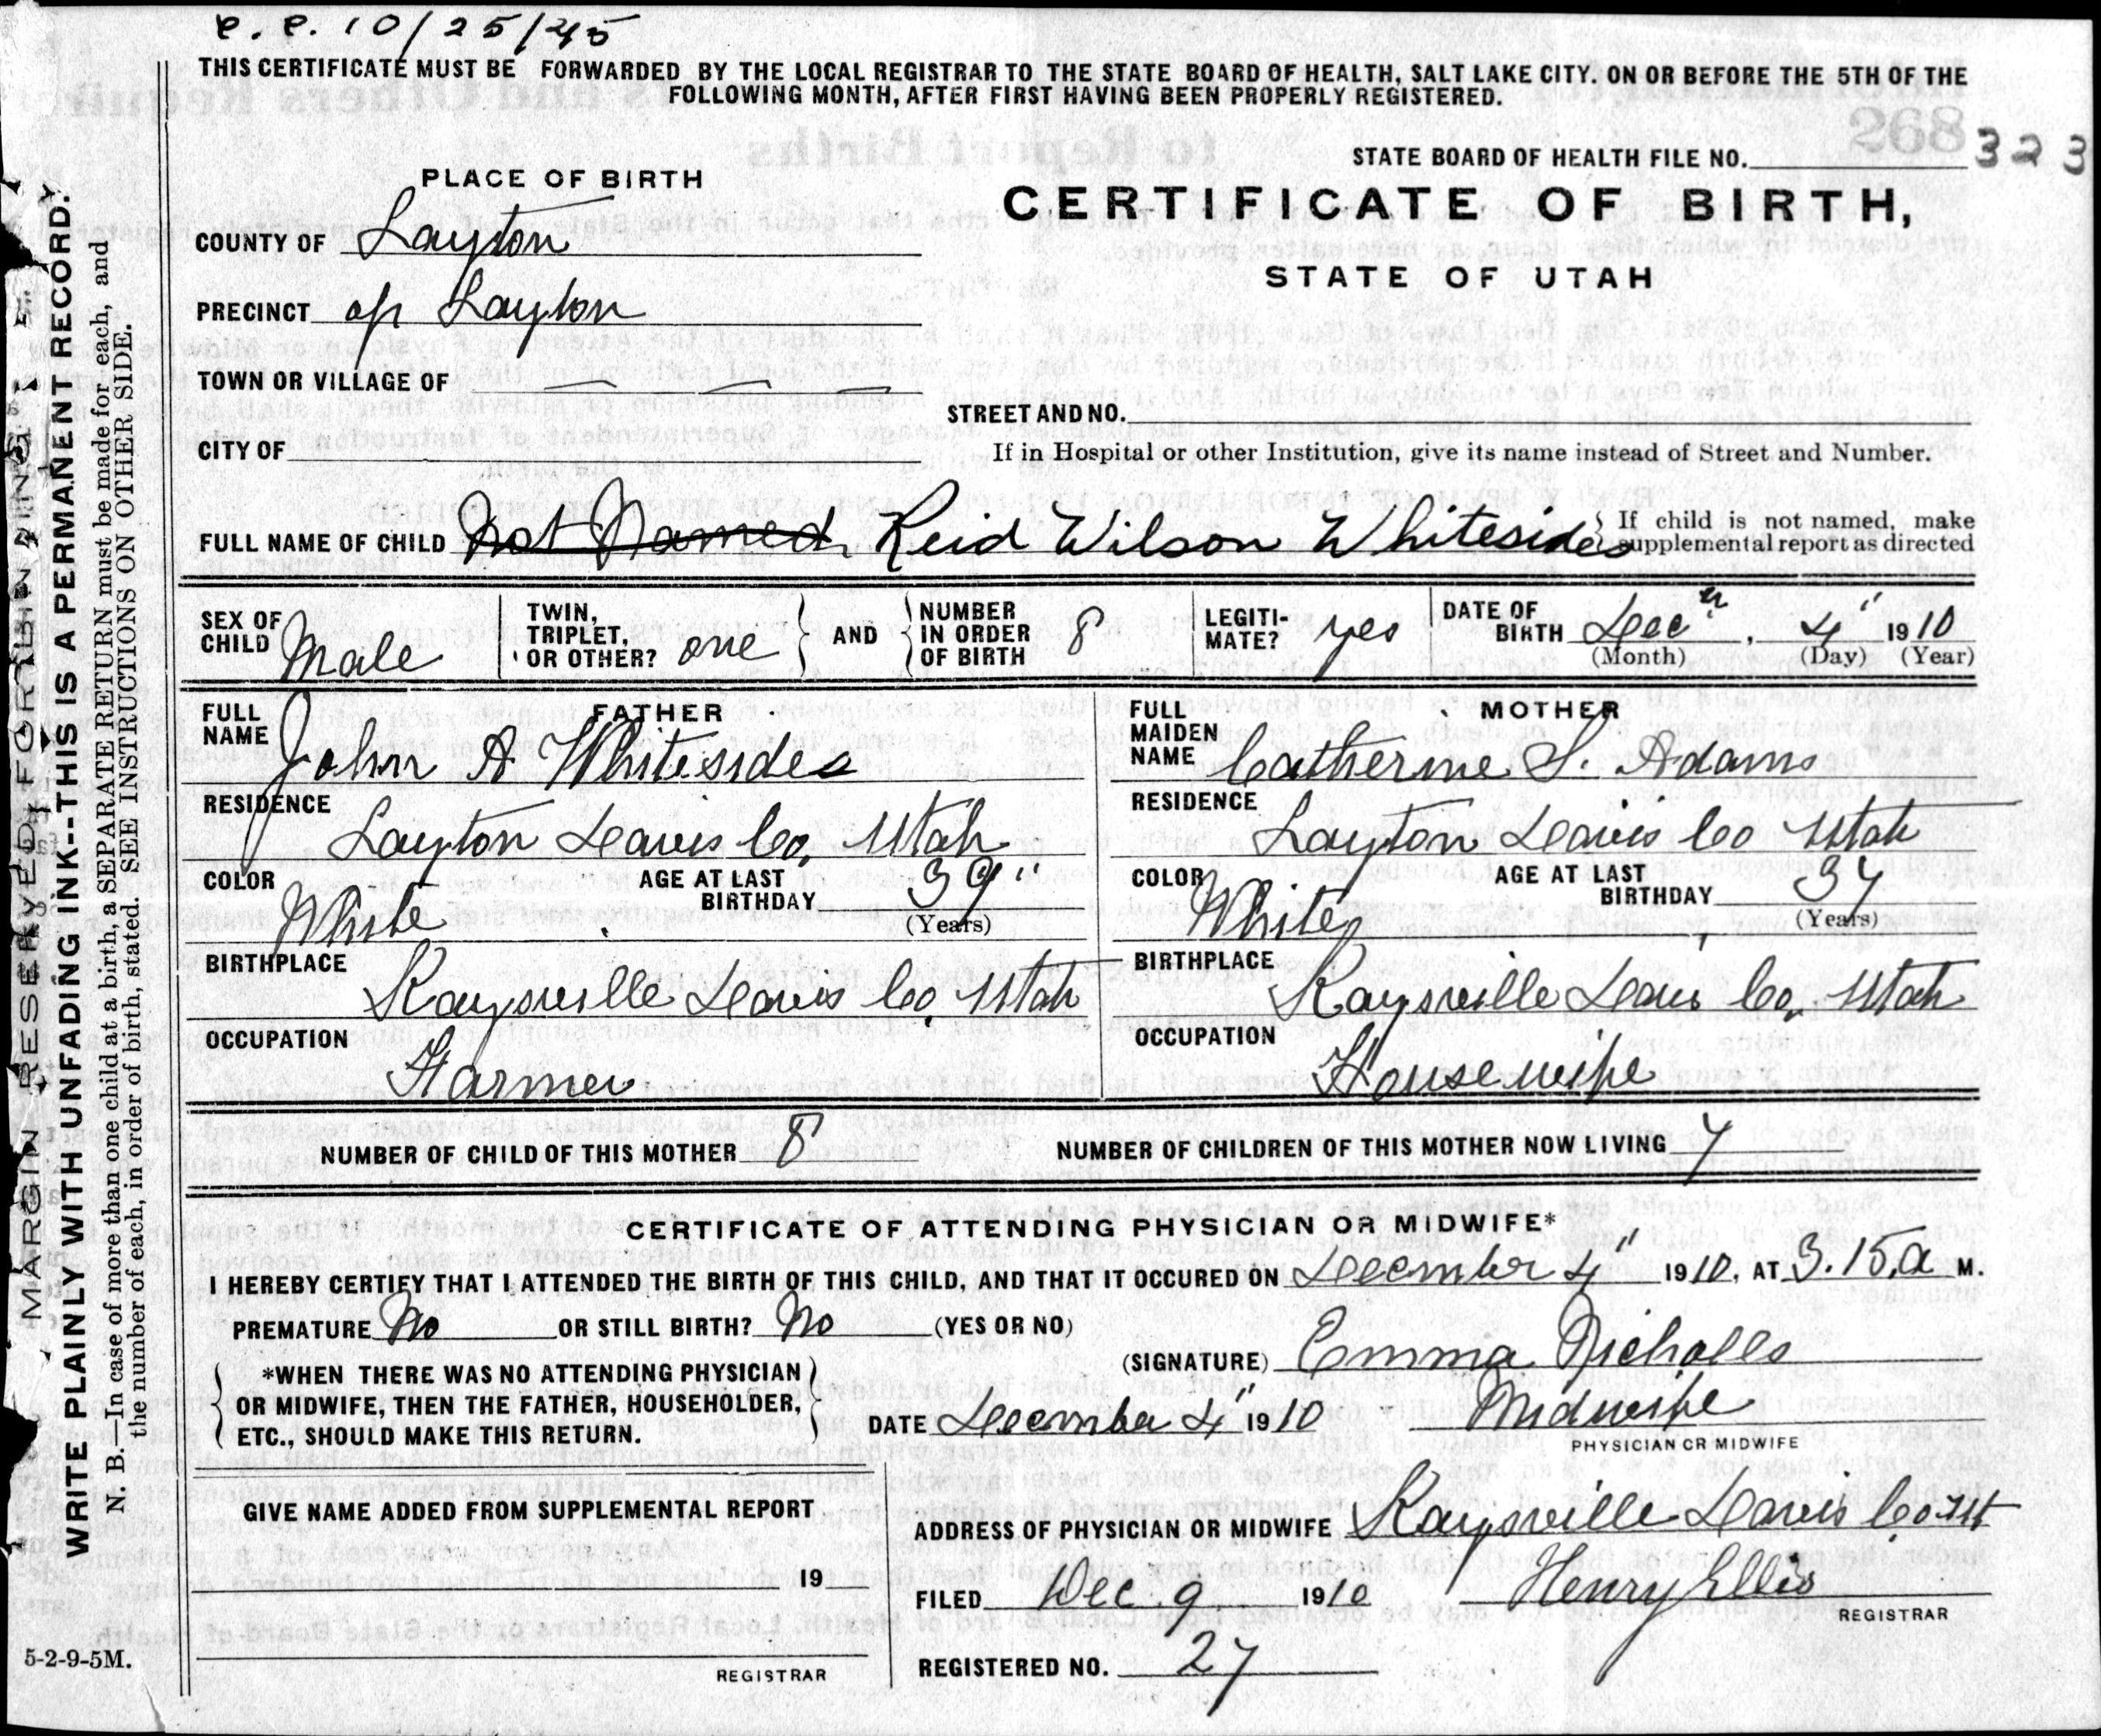 P.P. 10/25/45
THIS CERTIFICATE MUST BE FORWARDED BY THE LOCAL REGISTRAR TO THE STATE BOARD OF HEALTH, SALT LAKE CITY. ON OR BEFORE THE 5TH OF THE
FOLLOWING MONTH, AFTER FIRST HAVING BEEN PROPERLY REGISTERED.
268
STATE BOARD OF HEALTH FILE NO. 323
PLACE OF BIRTH
CERTIFICATE OF BIRTH,
STATE OF UTAH
COUNTY OF Layton
PRECINCT of Layton
TOWN OR VILLAGE OF — — —
STREET AND NO.
CITY OF
If in Hospital or other Institution, give its name instead of Street and Number.
FULL NAME OF CHILD Not Named, Reid Wilson Whitesides
If child is not named, make
supplemental report as directed
SEX OF CHILD Male
TWIN, TRIPLET, OR OTHER? one
AND
NUMBER IN ORDER OF BIRTH 8
LEGITI-MATE? yes
DATE OF BIRTH Decr, 4" 1910
(Month) (Day) (Year)
FATHER
FULL NAME John A Whitesides
RESIDENCE
Layton Davis Co, Utah
COLOR White
AGE AT LAST BIRTHDAY 39"
(Years)
BIRTHPLACE
Kaysville Davis Co, Utah
OCCUPATION
Farmer
MOTHER
FULL MAIDEN NAME Catherine S. Adams
RESIDENCE
Layton Davis Co Utah
COLOR White
AGE AT LAST BIRTHDAY 37
(Years)
BIRTHPLACE
Kaysville Davis Co, Utah
OCCUPATION
Housewife
NUMBER OF CHILD OF THIS MOTHER 8
NUMBER OF CHILDREN OF THIS MOTHER NOW LIVING 7
CERTIFICATE OF ATTENDING PHYSICIAN OR MIDWIFE*
I HEREBY CERTIFY THAT I ATTENDED THE BIRTH OF THIS CHILD, AND THAT IT OCCURED ON December 4" 1910, AT 3.15, a M.
PREMATURE No OR STILL BIRTH? No (YES OR NO)
*WHEN THERE WAS NO ATTENDING PHYSICIAN
OR MIDWIFE, THEN THE FATHER, HOUSEHOLDER,
ETC., SHOULD MAKE THIS RETURN.
(SIGNATURE) Emma Nicholls
DATE December 4" 1910
Midwife
PHYSICIAN OR MIDWIFE
GIVE NAME ADDED FROM SUPPLEMENTAL REPORT
19
REGISTRAR
ADDRESS OF PHYSICIAN OR MIDWIFE Kaysville Davis Co Ut
FILED Dec 9 1910
Henry Ellis
REGISTRAR
REGISTERED NO. 27
MARGIN RESERVED FOR BINDING
WRITE PLAINLY WITH UNFADING INK--THIS IS A PERMANENT RECORD.
N. B.—In case of more than one child at a birth, a SEPARATE RETURN must be made for each, and
the number of each, in order of birth, stated. SEE INSTRUCTIONS ON OTHER SIDE.
5-2-9-5M.